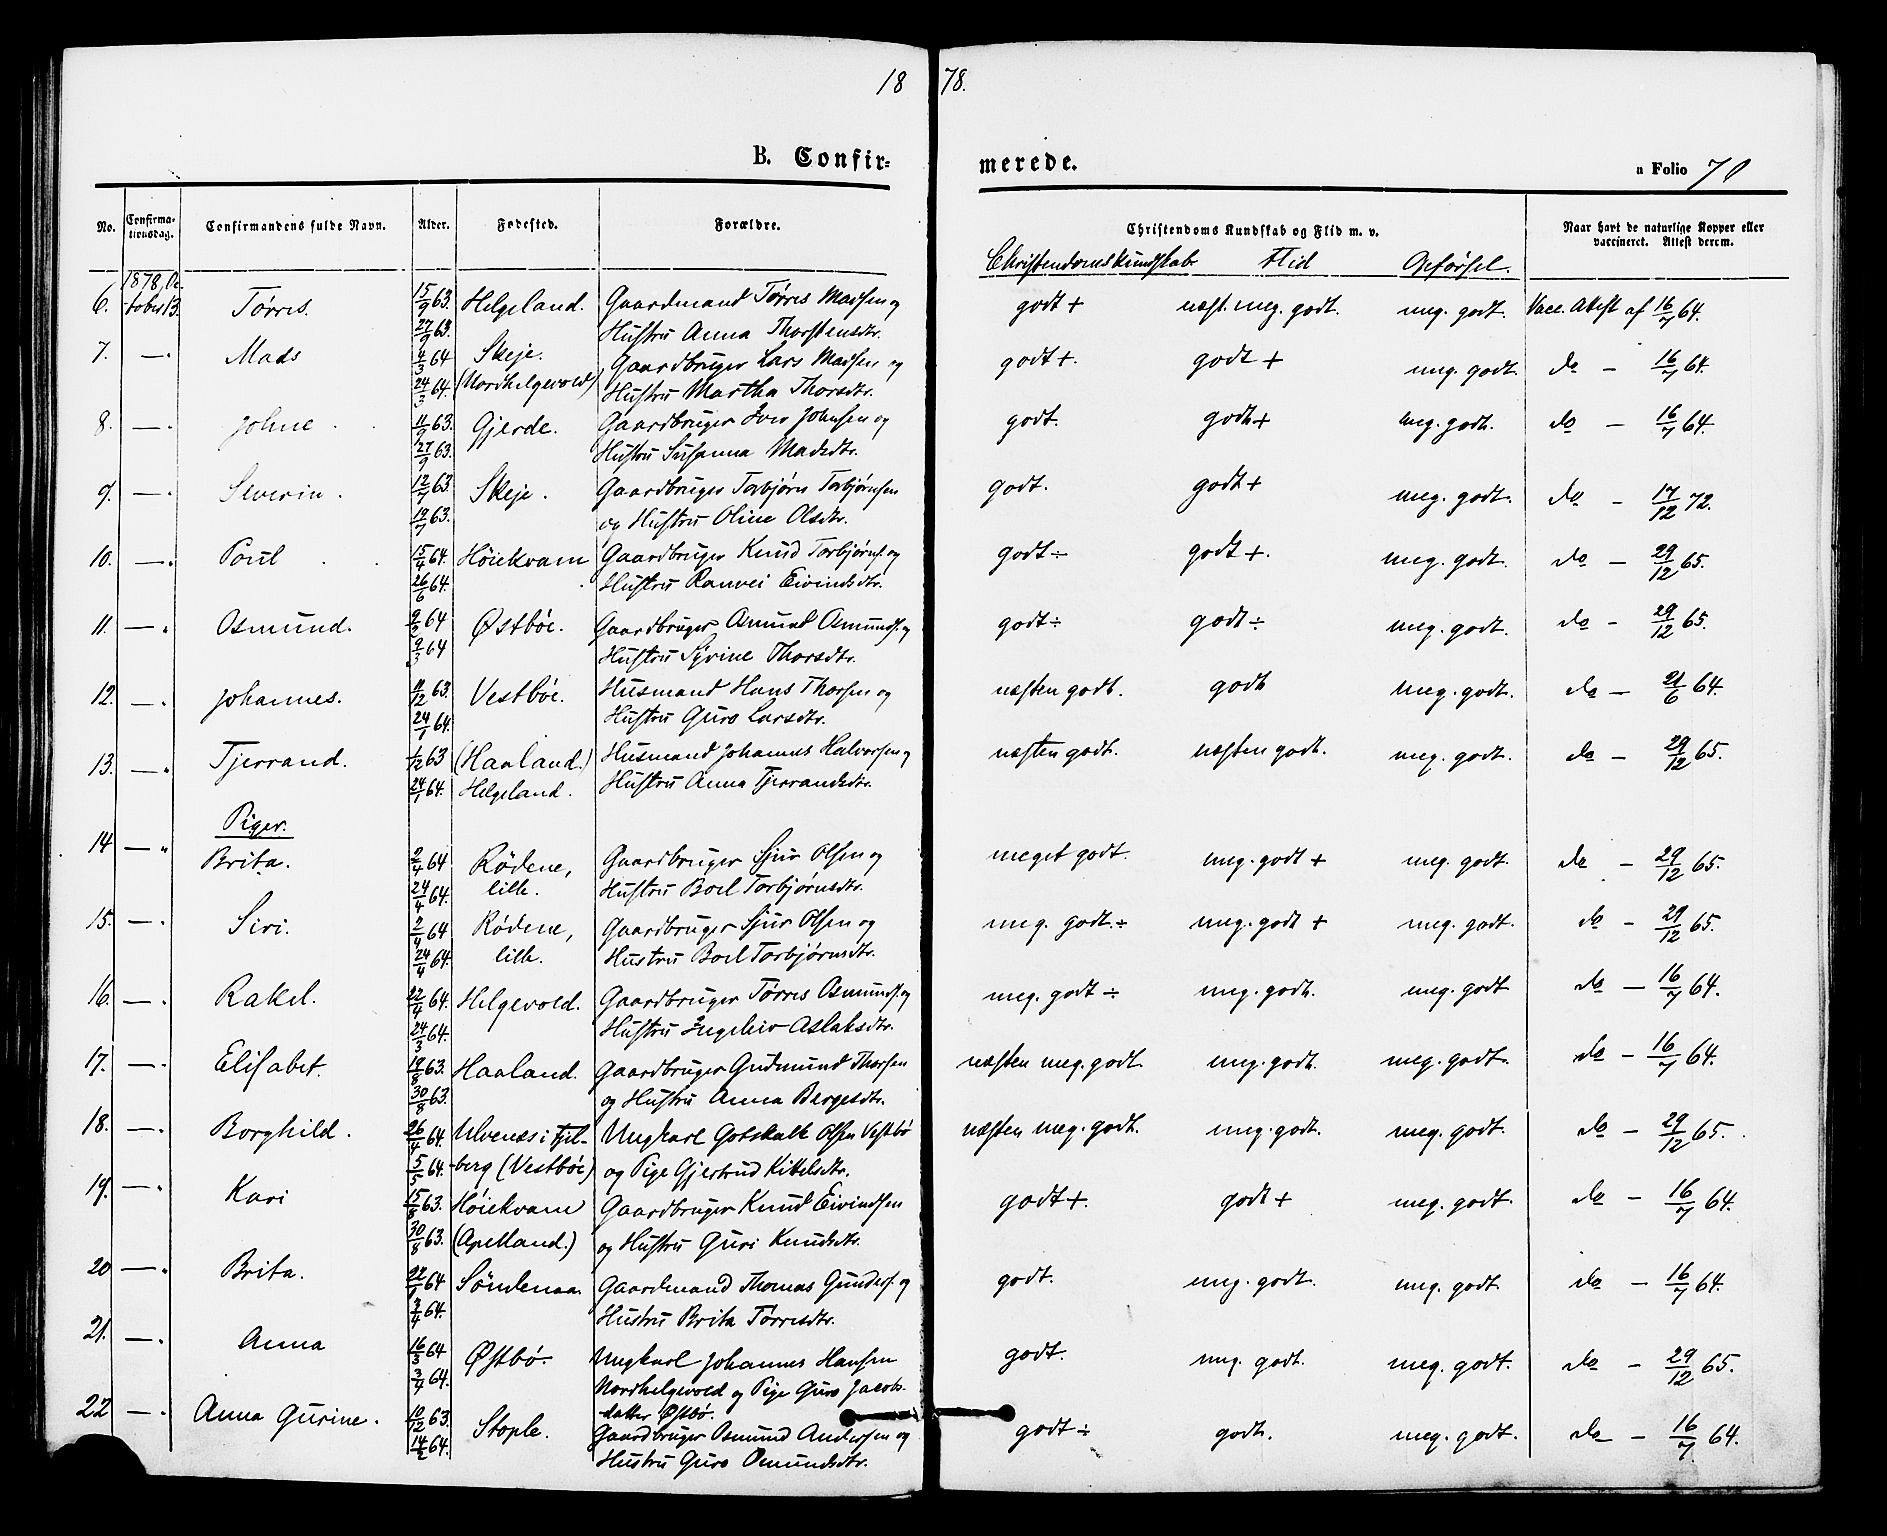 1878.
B. Confirmerede.
a Folio 70
No. Confirmationsdag. Confirmandens fulde Navn. Alder. Fødested. Forældre. Christendoms Kundskab og Flid m. v. Naar havt de naturlige Kopper eller vaccineret. Attest derom.
Christendomskundskab Flid Opførsel.
6. 1878, October 13. Tørres. 15/9 63. 27/9 63. Helgeland. Gaardmand Tørres Madsen og Hustru Anna Thorstensdtr. godt + næst. meg. godt. meg. godt. Vacc. Attest af 16/7 64.
7. — " Mads 4/3 64 24/3 64. Skeje. (Nordhelgevold) Gaardbruger Lars Madsen og Hustru Martha Thorsdtr. godt +. godt + meg. godt. do — 16/7 64.
8. — " Johne 11/9 63. 27/9 63. Gjerde. Gaardbruger Iver Johnsen og Hustru Susanna Madsdtr. godt. godt + meg. godt. do — 16/7 64.
9. — " Severin. 12/7 63. 19/7 63. Skeje. Gaardbruger Torbjørn Torbjørnsen og Hustru Oline Olsdtr. godt. godt + meg. godt. do — 17/12 72.
10. — " Poul 15/4 64. 26/6 64. Høiekvam Gaardbruger Knud Torbjørns. og Hustru Ranvei Eivindsdtr. godt ÷ godt +. meg. godt. do — 29/12 65.
11. — " Osmund. 9/2 64 9/3 64 Østbøe. Gaardbruger Osmund Osmunds. og Hustru Syrine Thorsdtr. godt ÷ godt ÷ meg. godt. do - 29/12 65.
12. — " Johannes. 11/12 63. 24/1 64. Vestbøe. Husmand Hans Thorsen og Hustru Guro Larsdtr. næsten godt. godt meg. godt. do — 21/6 64.
13. — " Tjerrand. 1/12 63 24/1 64. (Haaland.) Helgeland. Husmand Johannes Halvorsen og Hustru Anna Tjerrandsdtr. næsten godt. næsten godt. meg. godt. do — 29/12 65.
Piger.
14 — " Brita. 2/4 64 24/4 64. Rödene, lille. Gaardbruger Sjur Olsen og Hustru Boel Torbjørnsdtr. meget godt. meg. godt + meg. godt. do — 29/12 65.
15. — " Siri. 2/4 64 24/4 64. Rødene, lille. Gaardbruger Sjur Olsen og Hustru Boel Torbjørnsdtr. meg. godt. ÷ meg. godt + meg. godt. do — 29/12 65.
16. — " Rakel. 22/4 64. 24/3 64. Helgevold. Gaardbruger Tørres Osmunds. og Hustru Ingebor Aslaksdtr. meg. godt ÷ meg. godt. meg. godt do — 16/7 64.
17. — " Elisabet. 19/8 63. 30/8 63. Haaland. Gaardbruger Gudmund Thorsen og Hustru Anna Bergesdtr. næsten meg. godt meg. godt. meg. godt. do — 16/7 64.
18. — " Borghild. 26/4 64. 5/5 64. Ulvenes i Fjelberg (Vestbøe) Ungkarl Gotskalk Olsen Vestbø og Pige Gjertrud Kittelsdtr. næsten meg. godt. meg. godt. meg. godt. do — 29/12 65.
19. — " Kari 15/8 63. 30/8 63. Høiekvam (Apelland.) Gaardbruger Knud Eivindsen og Hustru Guri Knudsdtr. godt +. godt + meg. godt. do — 16/7 64.
20 — " Brita. 22/1 64 3/4 64. Söndenaa Gaardmand Thomas Gunders. og Hustru Brita Tørresdtr. godt. meg. godt. meg. godt do — 16/7 64.
21. — " Anna 16/3 64 3/4 64. Østbø. Ungkarl Johannes Hansen Nordhelgevold og Pige Guro Jacobsdatter Østbø. godt. meg. godt. meg. godt. do — 29/12 65.
22 — " Anna Gurine. 10/12 63. 14/2 64. Stople. Gaardbruger Osmund Andersen og Hustru Guro Osmundsdtr. godt ÷ godt. meg. godt. do — 16/7 64.